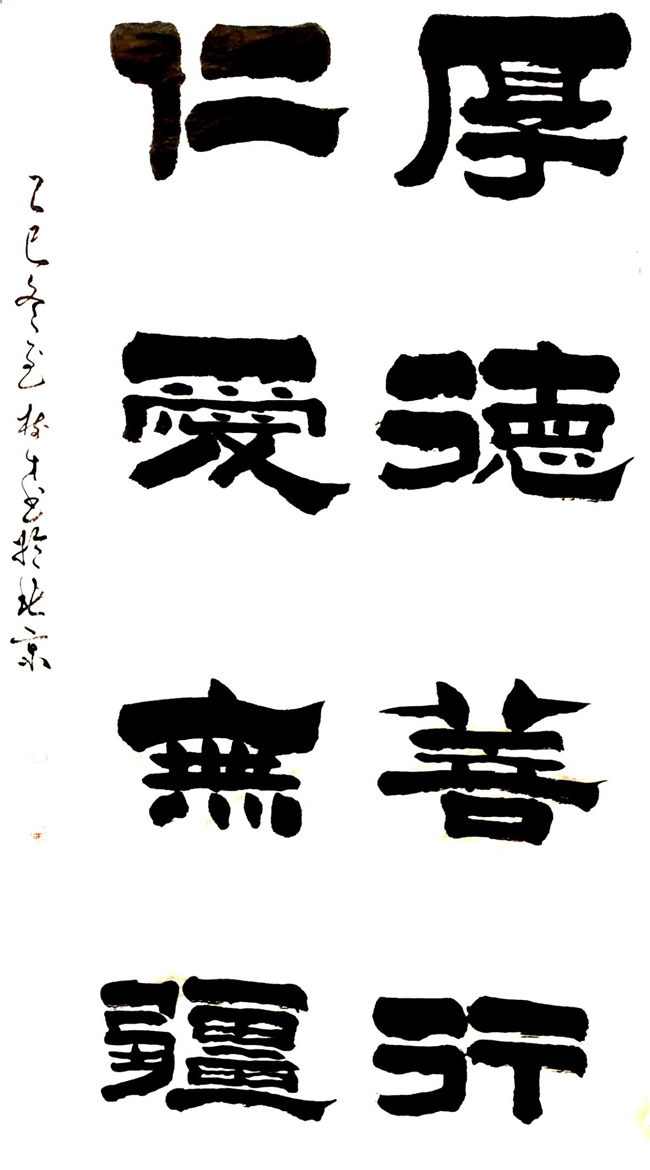 厚德善行
仁愛無疆
乙巳冬至樹生書於北京